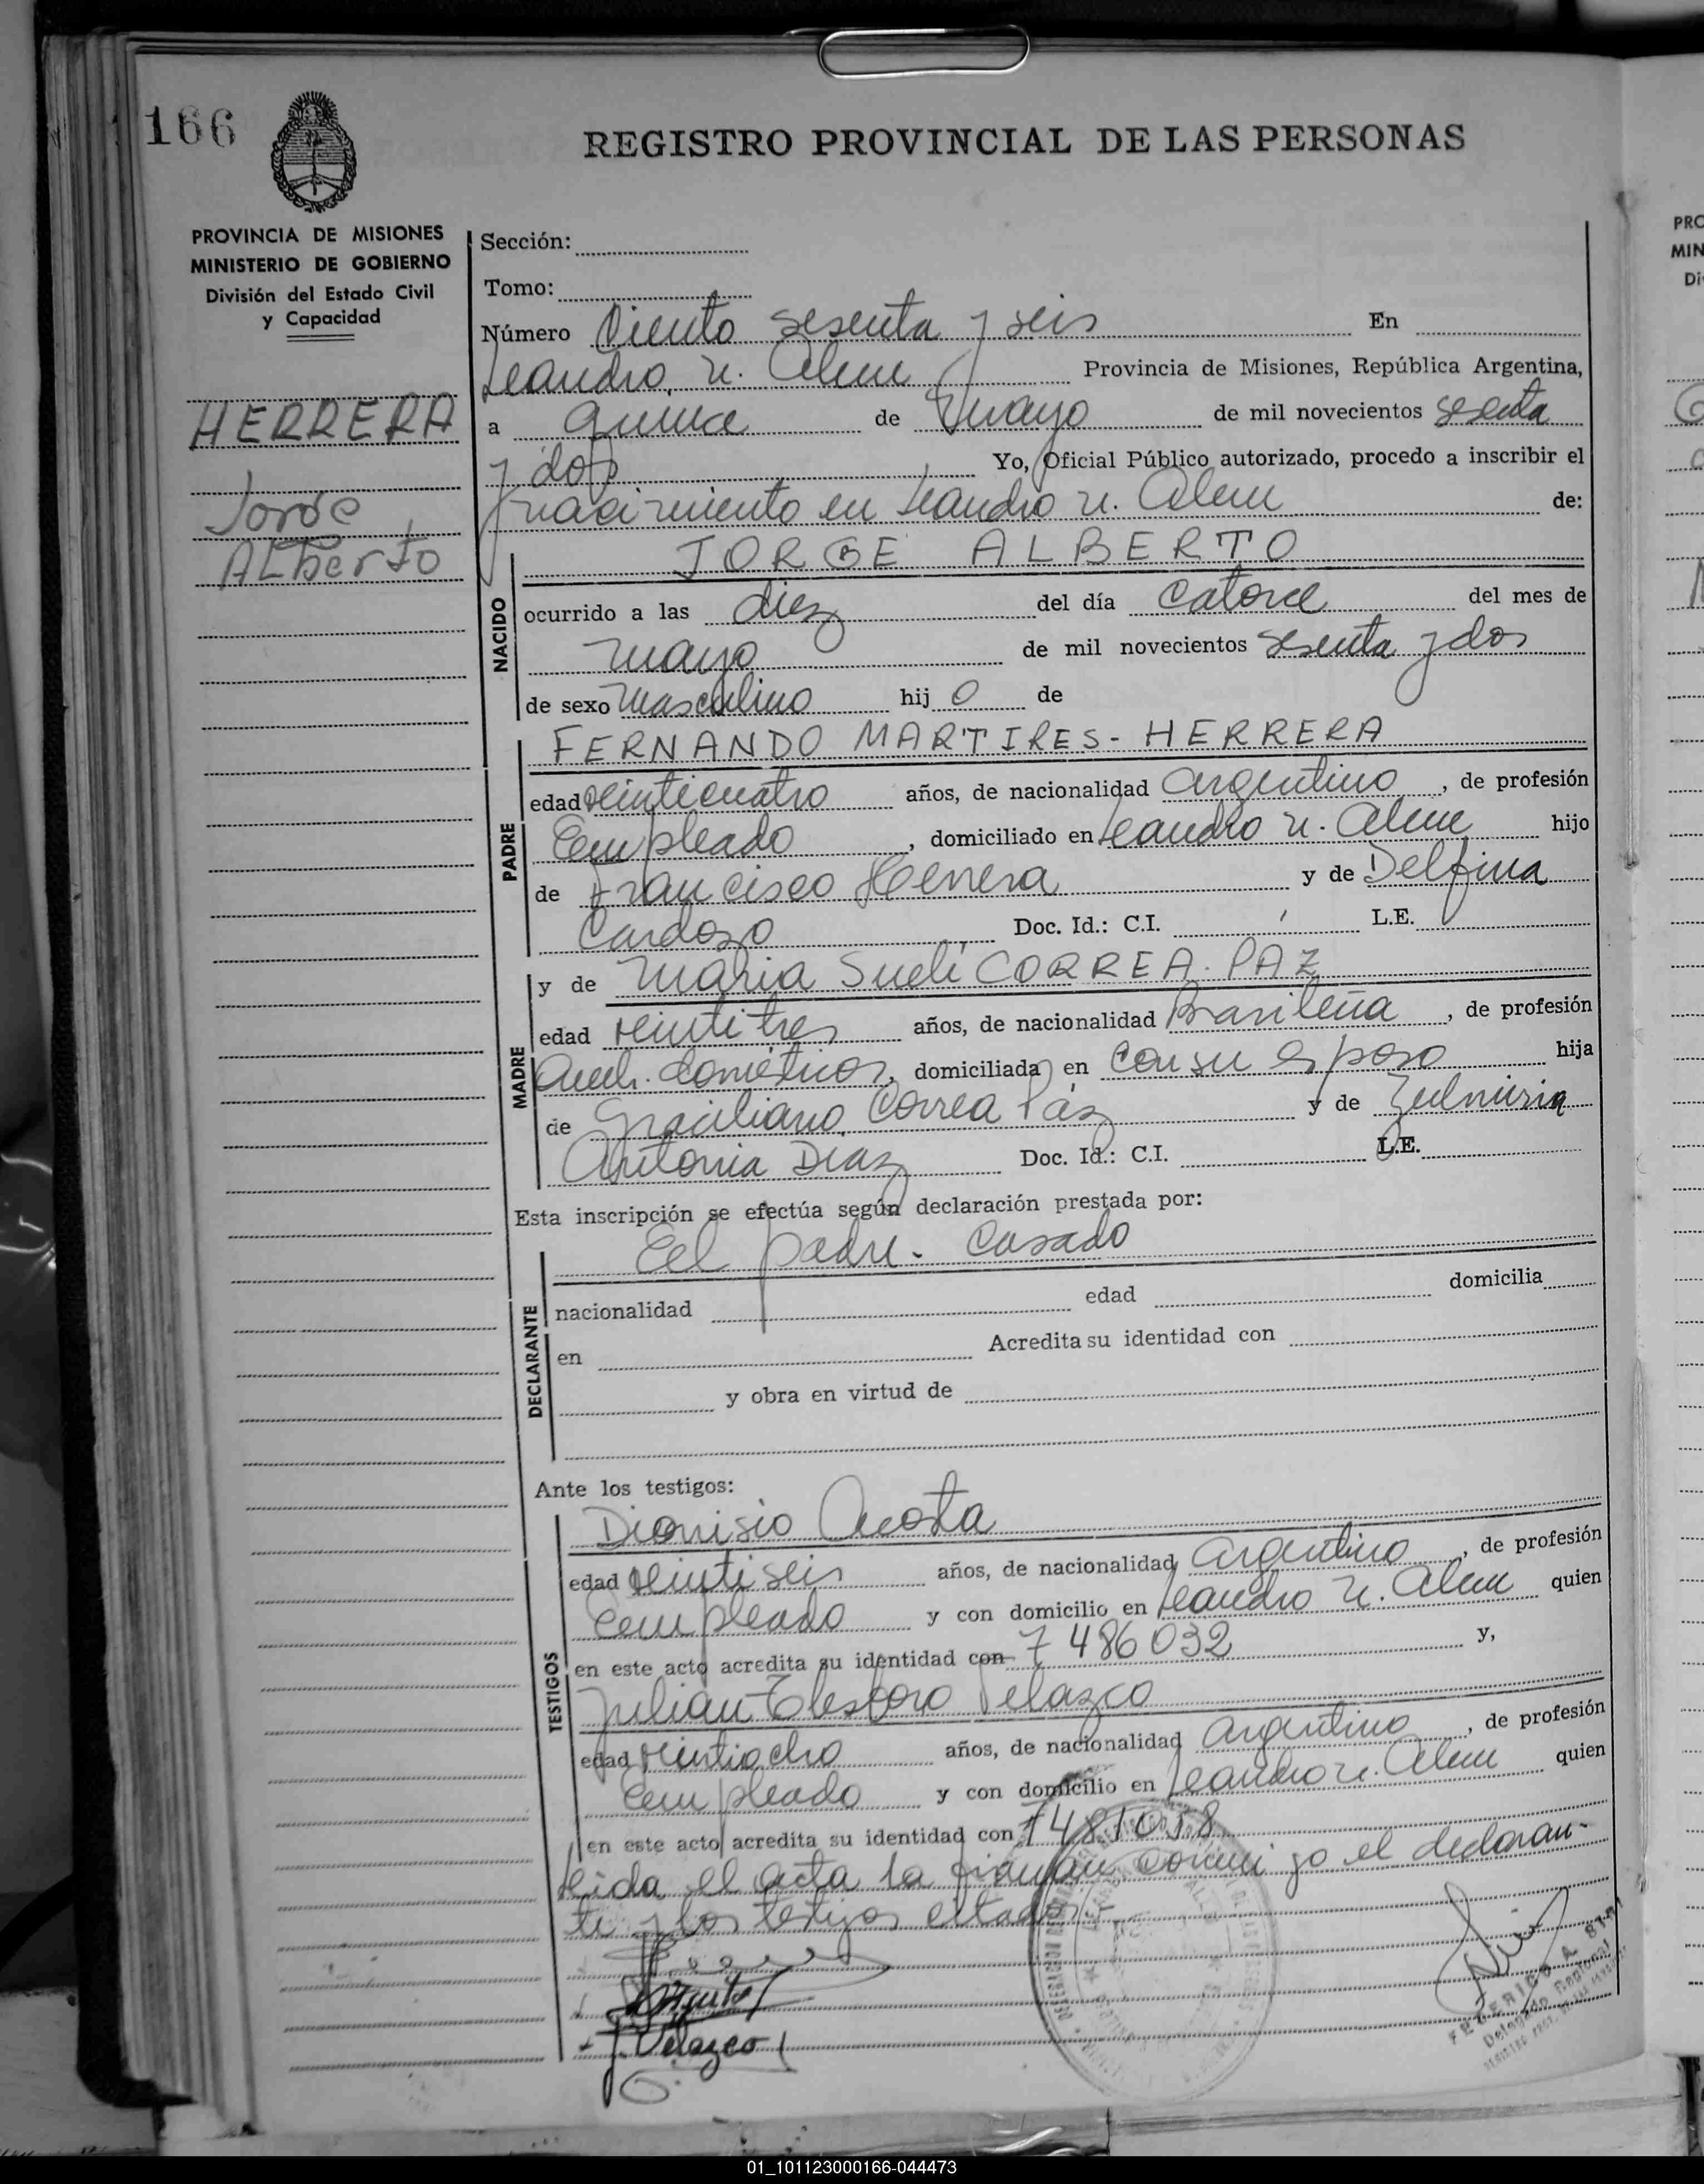 166
REGISTRO PROVINCIAL DE LAS PERSONAS
PROVINCIA DE MISIONES
MINISTERIO DE GOBIERNO
División del Estado Civil
y Capacidad
HERRERA
Jorge
Alberto
Sección:
Tomo:
Número Ciento sesenta y seis En
Leandro N. Alem Provincia de Misiones, República Argentina,
a quince de mayo de mil novecientos sesenta
y dos Yo, Oficial Público autorizado, procedo a inscribir el
nacimiento en Leandro N. Alem de:
JORGE ALBERTO
NACIDO
ocurrido a las diez del día catorce del mes de
mayo de mil novecientos sesenta y dos
de sexo masculino hij o de
FERNANDO MARTIRES - HERRERA
PADRE
edad veinticuatro años, de nacionalidad argentino, de profesión
Empleado, domiciliado en Leandro N. Alem hijo
de Francisco Herrera y de Delfina
Cardozo Doc. Id.: C.I. L.E.
y de Maria Suelí CORREA. PAZ
MADRE
edad veintitres años, de nacionalidad Brasileña, de profesión
domiciliada en con su esposo hija
de Graciliano Correa Páz y de
Antonia Diaz Doc. Id.: C.I. L.E.
Esta inscripción se efectúa según declaración prestada por:
El padre. Casado
DECLARANTE
nacionalidad edad domicilia
en Acredita su identidad con
y obra en virtud de
Ante los testigos:
TESTIGOS
Dionisio Acosta
edad veintiseis años, de nacionalidad argentino, de profesión
Empleado y con domicilio en Leandro N. Alem quien
en este acto acredita su identidad con 7486032 y,
Julian Telesforo Velazco
edad veintiocho años, de nacionalidad argentino, de profesión
Empleado y con domicilio en Leandro N. Alem quien
en este acto acredita su identidad con
Leida el acta la firman conmigo el declaran-
te y los testigos citados.
J. Velazco
FEDERICO A.
Delegado Regional
PRO
MIN
Di
01_101123000166-044473